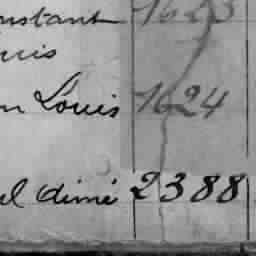 nstant 1623
uis
n Louis 1624
el dimé 2388